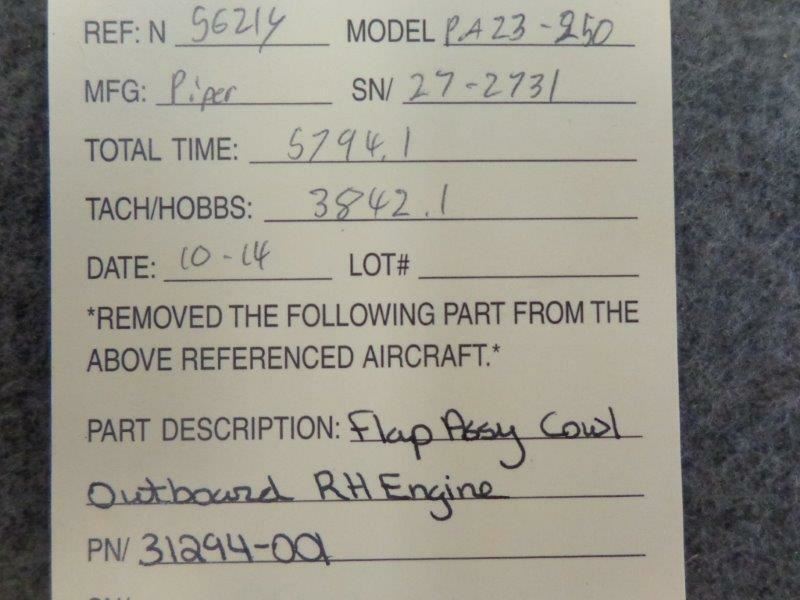 REF: N 5621Y MODEL PA23-250
MFG: Piper SN/ 27-2731
TOTAL TIME: 5794.1
TACH/HOBBS: 3842.1
DATE: 10-14 LOT#
*REMOVED THE FOLLOWING PART FROM THE
ABOVE REFERENCED AIRCRAFT.*
PART DESCRIPTION: Flap Assy Cowl
Outboard RH Engine
PN/ 31294-001